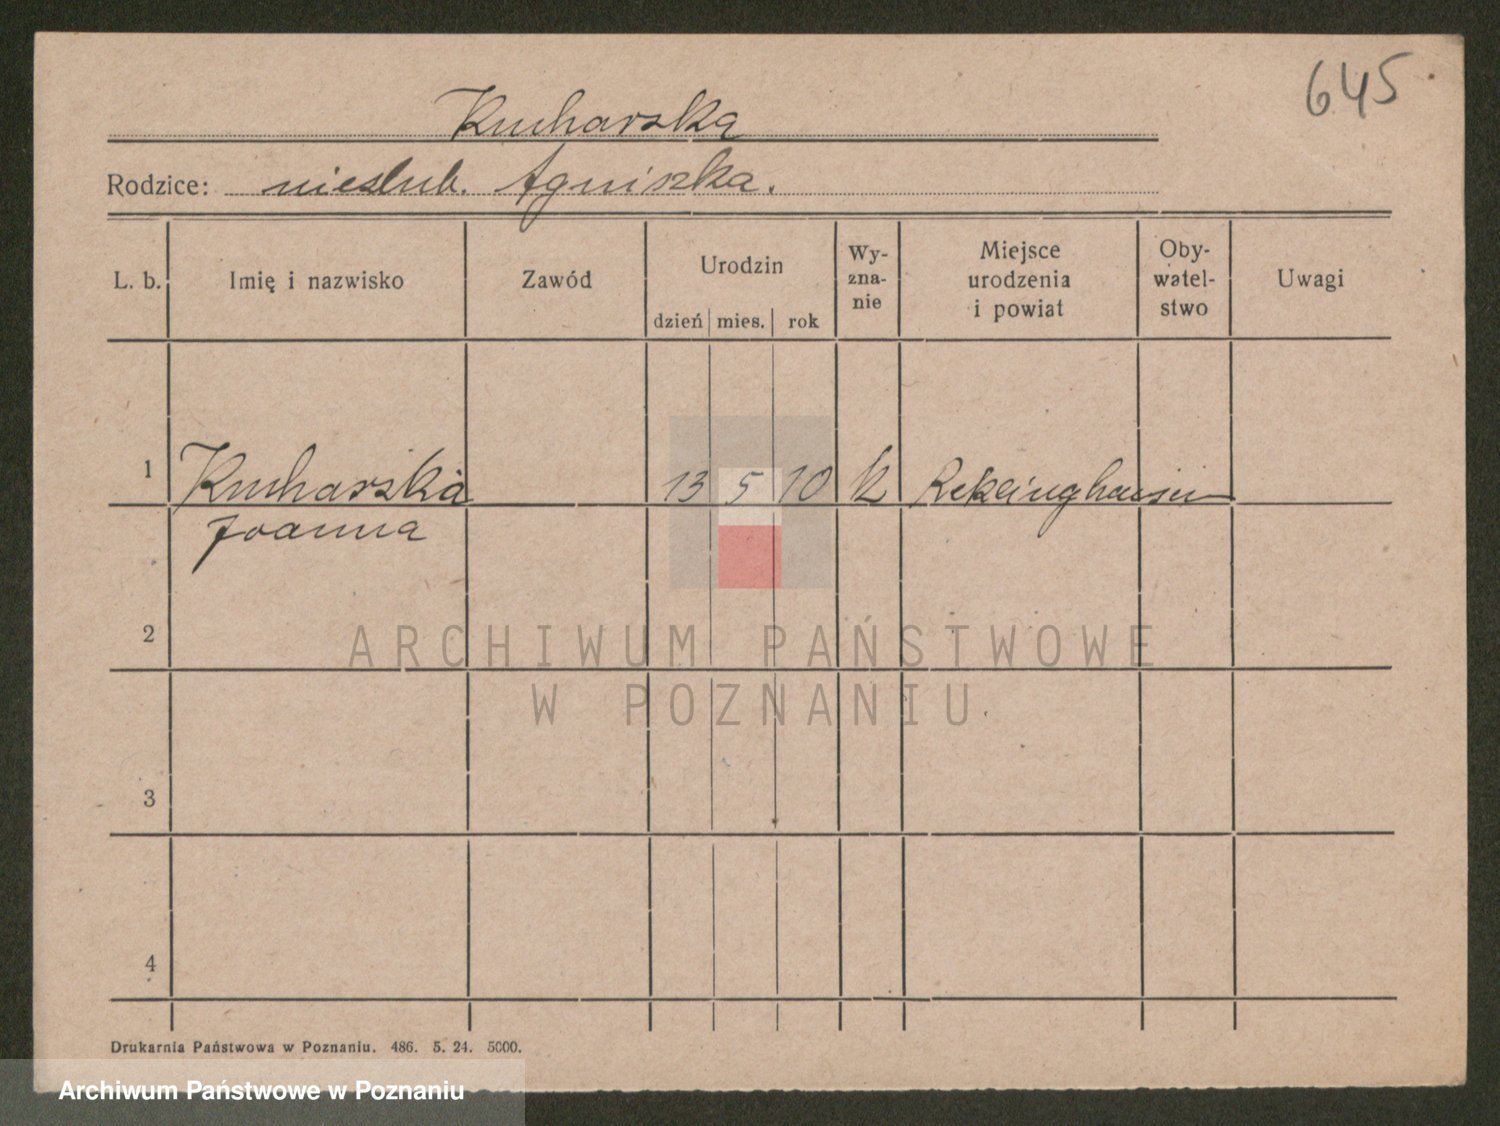 645
Kucharska
Rodzice: nieslub. Agniszka.
L. b. Imię i nazwisko Zawód Urodzin dzień mies. rok Wy-zna-nie Miejsce urodzenia i powiat Oby-watel-stwo Uwagi
1 Kucharska 13 5 10 k Reklinghausen
Joanna
2
ARCHIWUM PAŃSTWOWE
W POZNANIU
3
4
Drukarnia Państwowa w Poznaniu. 486. 5. 24. 5000.
Archiwum Państwowe w Poznaniu